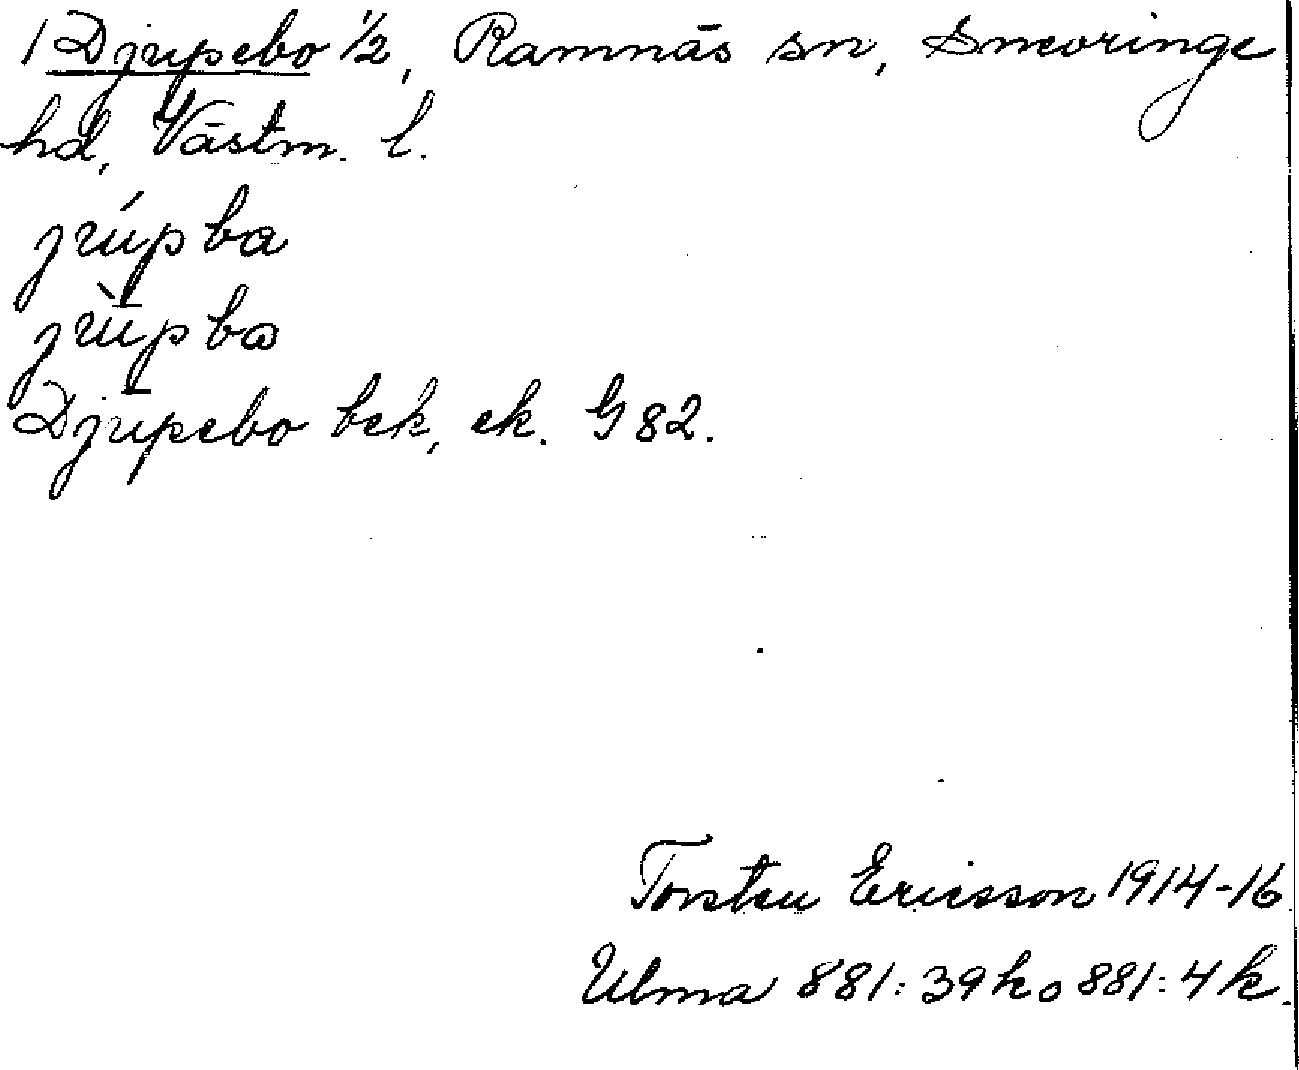 1 Djupebo 1/2, Ramnäs sn, Snevringe
hd, Västm. l.
júpba
jùpba
Djupebo bek, ek. G 82.
Torsten Ericsson 1914-16
Ulma 881:39 k o 881:4 k.